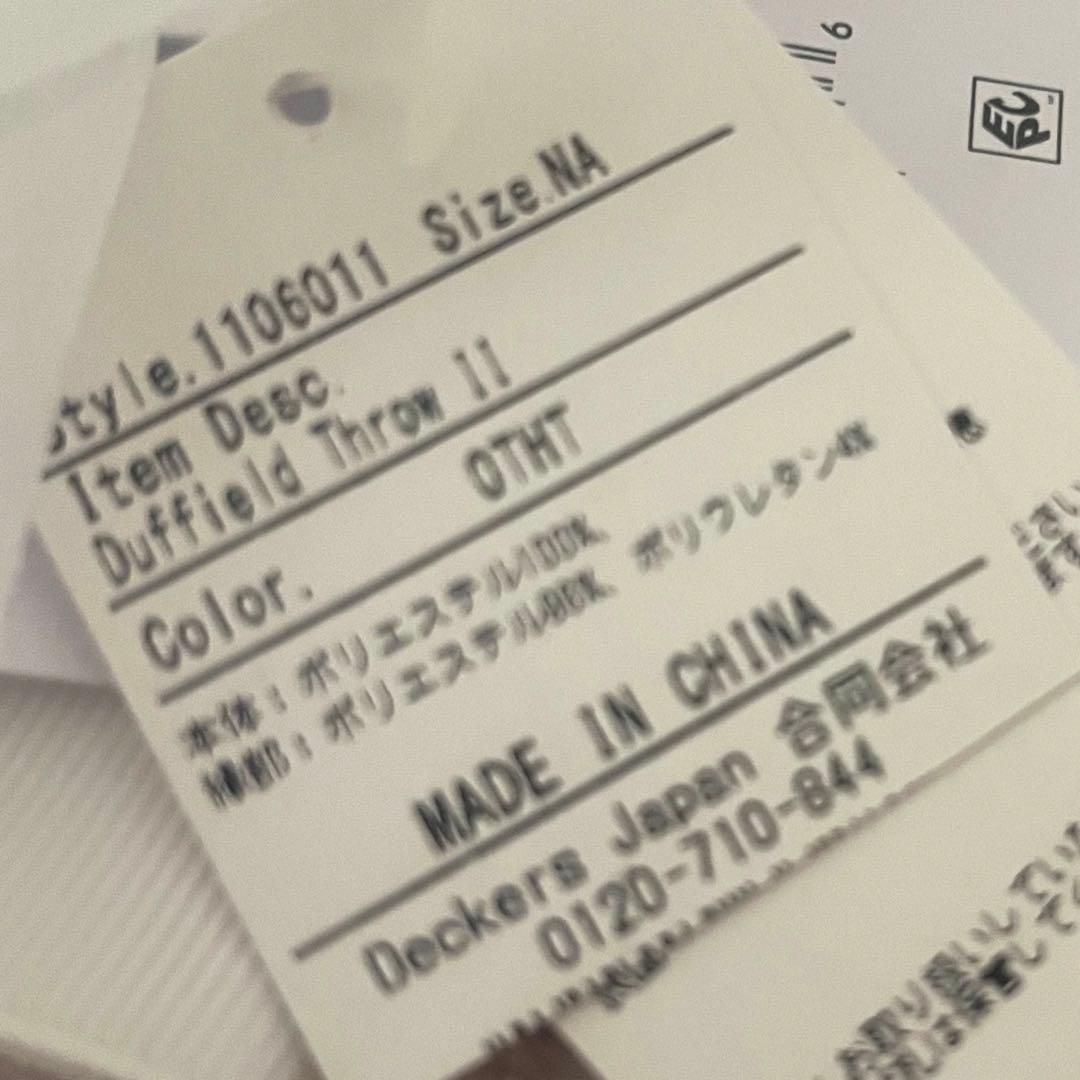 Style.1106011 Size.NA
Item Desc.
Duffield Throw II
Color. OTHT
本体：ポリエステル100%
ポリエステル96%, ポリウレタン4%
MADE IN CHINA
Deckers Japan 合同会社
0120-710-844
6
EPC
さい
ます
お取り扱いしてい
保管して